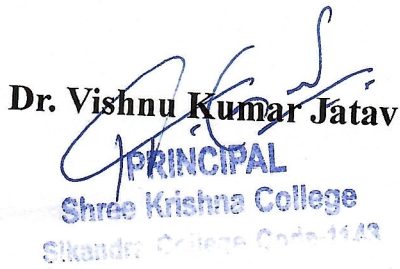 Dr. Vishnu Kumar Jatav
PRINCIPAL
Shree Krishna College
Sikandra College Code-1143